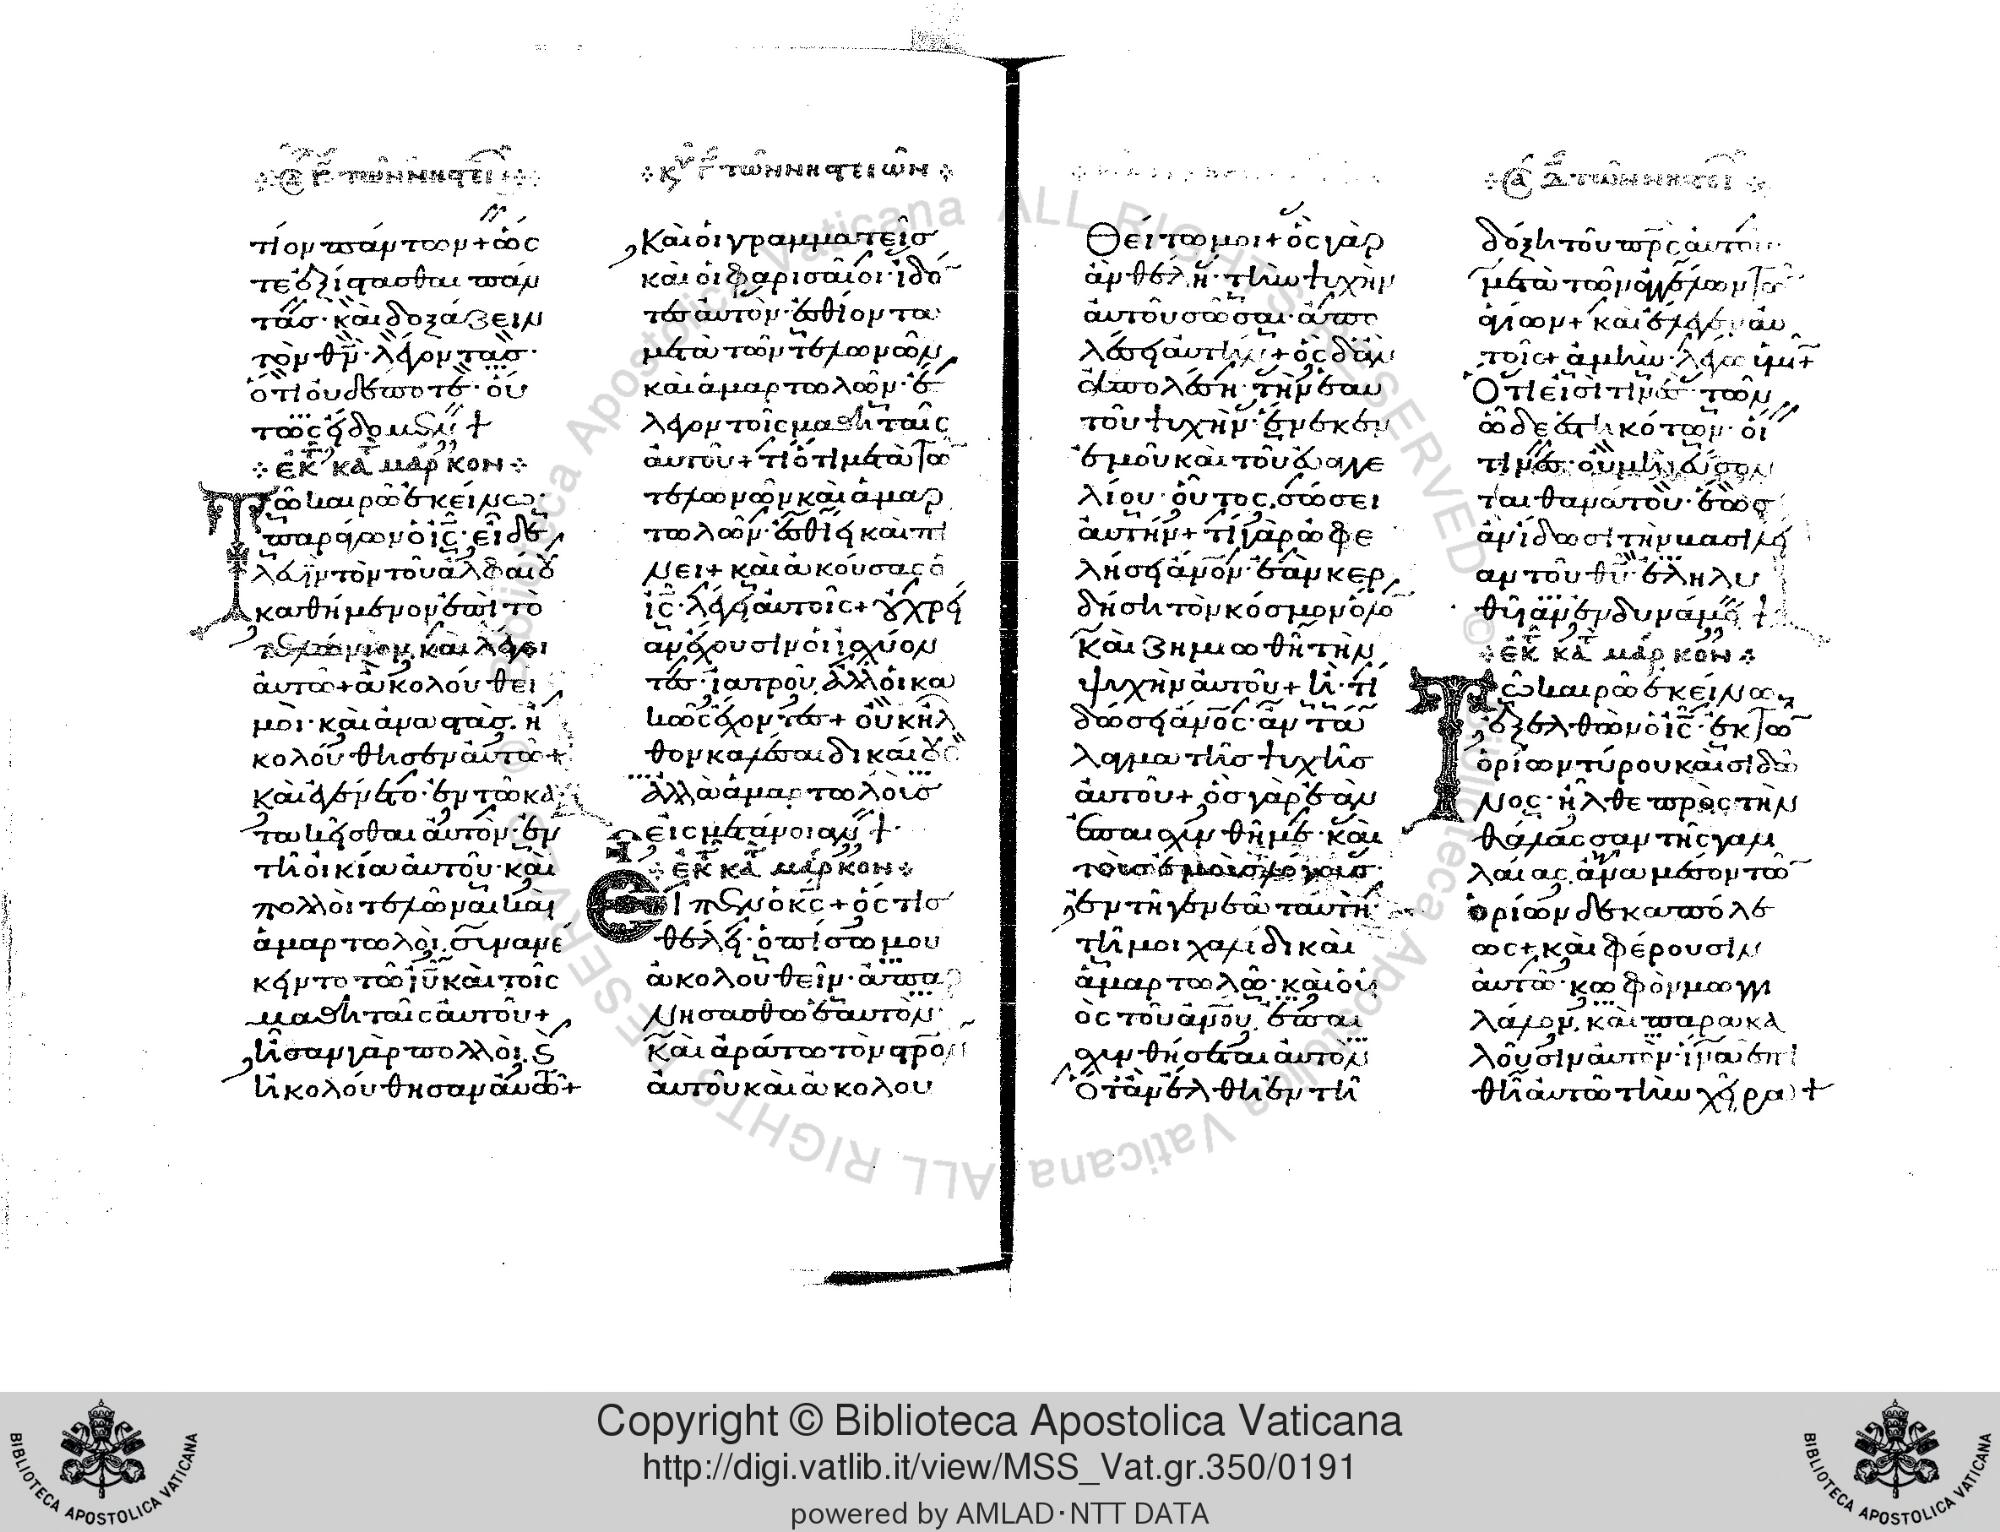 τῶν νηστει
τίον πάντων + ὥς
τε ἐξίστασθαι πάν
τας · καὶ δοξάζειν
τὸν θν̅ · λέγοντας ·
ὅτι οὐδέποτε · οὕ
τως εἴδομεν +
ἐκ κατ μάρκον
Τῶ καιρῶ ἐκείνω ·
παράγων ὁ ις̅ · εἶδε
λευΐν τὸν τοῦ ἀλφαίου
καθήμενον ἐπὶ τὸ
τελώνιον, καὶ λέγει
αὐτῶ + ἀκολούθει
μοι · καὶ ἀναστὰς · ἠ
κολούθησεν αὐτῶ +
Καὶ ἐγένετο · ἐν τῶ κα
τακεῖσθαι αὐτὸν · ἐν
τῆ οἰκία αὐτοῦ · καὶ
πολλοὶ τελῶναι καὶ
ἁμαρτωλοὶ · συνανέ
κειντο τῶ ιυ̅ καὶ τοῖς
μαθηταῖς αὐτοῦ +
ἦσαν γὰρ πολλοὶ, καὶ
ἠκολούθησαν αὐτῶ +
κυ γ τῶν νηστειῶν
Καὶ οἱ γραμματεῖς
καὶ οἱ φαρισαῖοι · ἰδό
τες αὐτὸν · ἐσθίοντα
μετὰ τῶν τελωνῶν
καὶ ἁμαρτωλῶν · ἔ
λεγον τοῖς μαθηταῖς
αὐτοῦ + τί ὅτι μετὰ τῶ
τελωνῶν καὶ ἁμαρ
τωλῶν · ἐσθίει καὶ πί
νει + καὶ ἀκούσας ὁ
ις̅ · λέγει αὐτοῖς + οὐ χρεί
αν ἔχουσιν οἱ ἰσχύον
τες · ἰατροῦ, ἀλλ' οἱ κα
κῶς ἔχοντες + οὐκ ἦλ
θον καλέσαι δικαίους
ἀλλὰ ἁμαρτωλοὺς
εἰς μετάνοιαν +
ἐκ κατ μάρκον
Εἶπεν ὁ κς̅ + ὅστις
θέλει · ὀπίσω μου
ἀκολουθεῖν · ἀπαρ
νησάσθω ἑαυτὸν ·
Καὶ ἀράτω τὸν στρον
αὐτοῦ καὶ ἀκολου
Θείτω μοι + ὃς γὰρ
ἂν θέλη · τὴν ψυχὴν
αὐτοῦ σῶσαι · ἀπο
λέσει αὐτήν + ὃς δ' ἂν
ἀπολέση · τὴν ἑαυ
τοῦ ψυχὴν · ἕνεκεν
ἐμοῦ καὶ τοῦ εὐαγγε
λίου · οὗτος, σώσει
αὐτήν + τί γὰρ ὠφε
λήσει ἄνον · ἐὰν κερ
δήση τὸν κόσμον ὅλο
Καὶ ζημιωθῆ τὴν
ψυχὴν αὐτοῦ + ἢ · τί
δώσει ἄνος · ἀντά
λλαγμα τῆς ψυχῆς
αὐτοῦ + ὃς γὰρ ἐὰν
ἐπαισχυνθῆ με · καὶ
τοὺς ἐμοὺς λόγους ·
ἐν τῆ γενεᾶ ταύτη ·
τῆ μοιχαλίδι καὶ
ἁμαρτωλῶ · καὶ ὁ υἱ
ὸς τοῦ ἀνου, ἐπαι
σχυνθήσεται αὐτὸν
Ὅταν ἔλθη ἐν τῆ
τῶν νηστει
δόξη τοῦ πρς αὐτοῦ ·
μετὰ τῶν ἀγγέλων τῶ
ἁγίων + καὶ ἔλεγεν αὐ
τοῖς + ἀμὴν · λέγω ὑμῖ +
Ὅτι εἰσί τινες τῶν
ὧδε ἑστηκότων · οἵ
τινες · οὐ μὴ γεύσον
ται θανάτου · ἕως
ἂν ἴδωσι τὴν βασιλεί
αν τοῦ θυ̅ · ἐληλυ
θυῖαν ἐν δυνάμει +
ἐκ κατ μάρκον
Τῶ καιρῶ ἐκείνω,
ἐξελθὼν ὁ ις̅ · ἐκ τῶ
ὁρίων τύρου καὶ σιδῶ
νος · ἦλθε πρὸς τὴν
θάλασσαν τῆς γαλι
λαίας, ἀνὰ μέσον τῶ
ὁρίων δεκαπόλε
ως + καὶ φέρουσιν
αὐτῶ · κωφὸν μογγι
λάλον, καὶ παρακα
λοῦσιν αὐτὸν · ἵνα ἐπι
θῆ αὐτῶ τὴν χεῖρα +
Copyright © Biblioteca Apostolica Vaticana
http://digi.vatlib.it/view/MSS_Vat.gr.350/0191
powered by AMLAD·NTT DATA
BIBLIOTECA APOSTOLICA VATICANA
BIBLIOTECA APOSTOLICA VATICANA